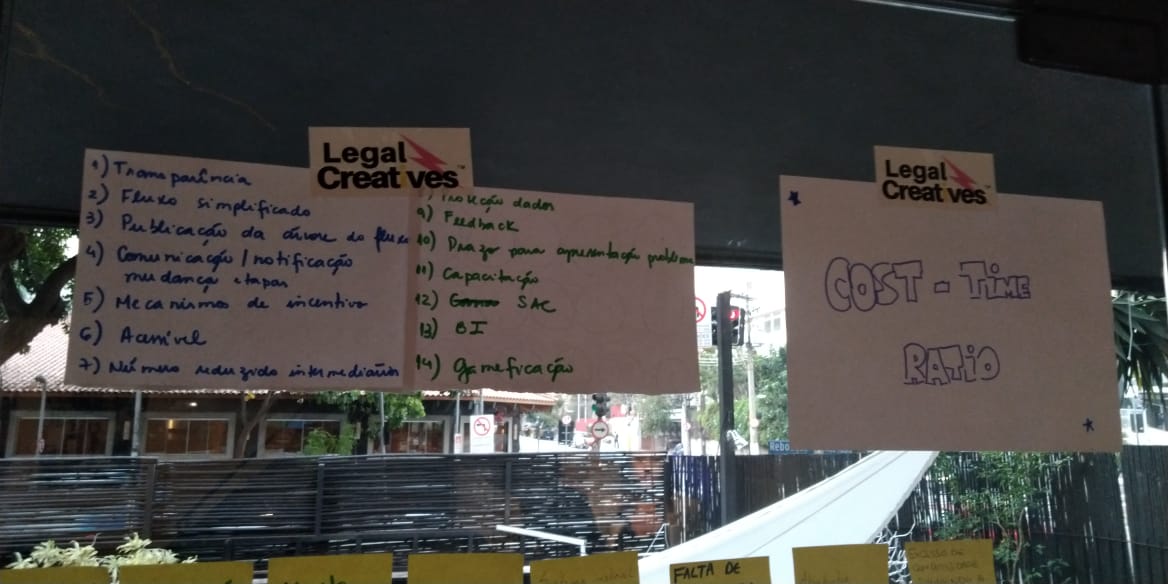 Legal
Creatives
1) Transparência
2) Fluxo simplificado
3) Publicação da árvore do fluxo
4) Comunicação / notificação
mudança etapas
5) Mecanismos de incentivo
6) Acessível
7) Número reduzido intermediários
Proteção dados
9) Feedback
10) Prazo para apresentação problema
11) Capacitação
12) SAC
13) BI
14) Gameficação
Legal
Creatives
COST - TIME
RATIO
FALTA DE
EXCESSO DE